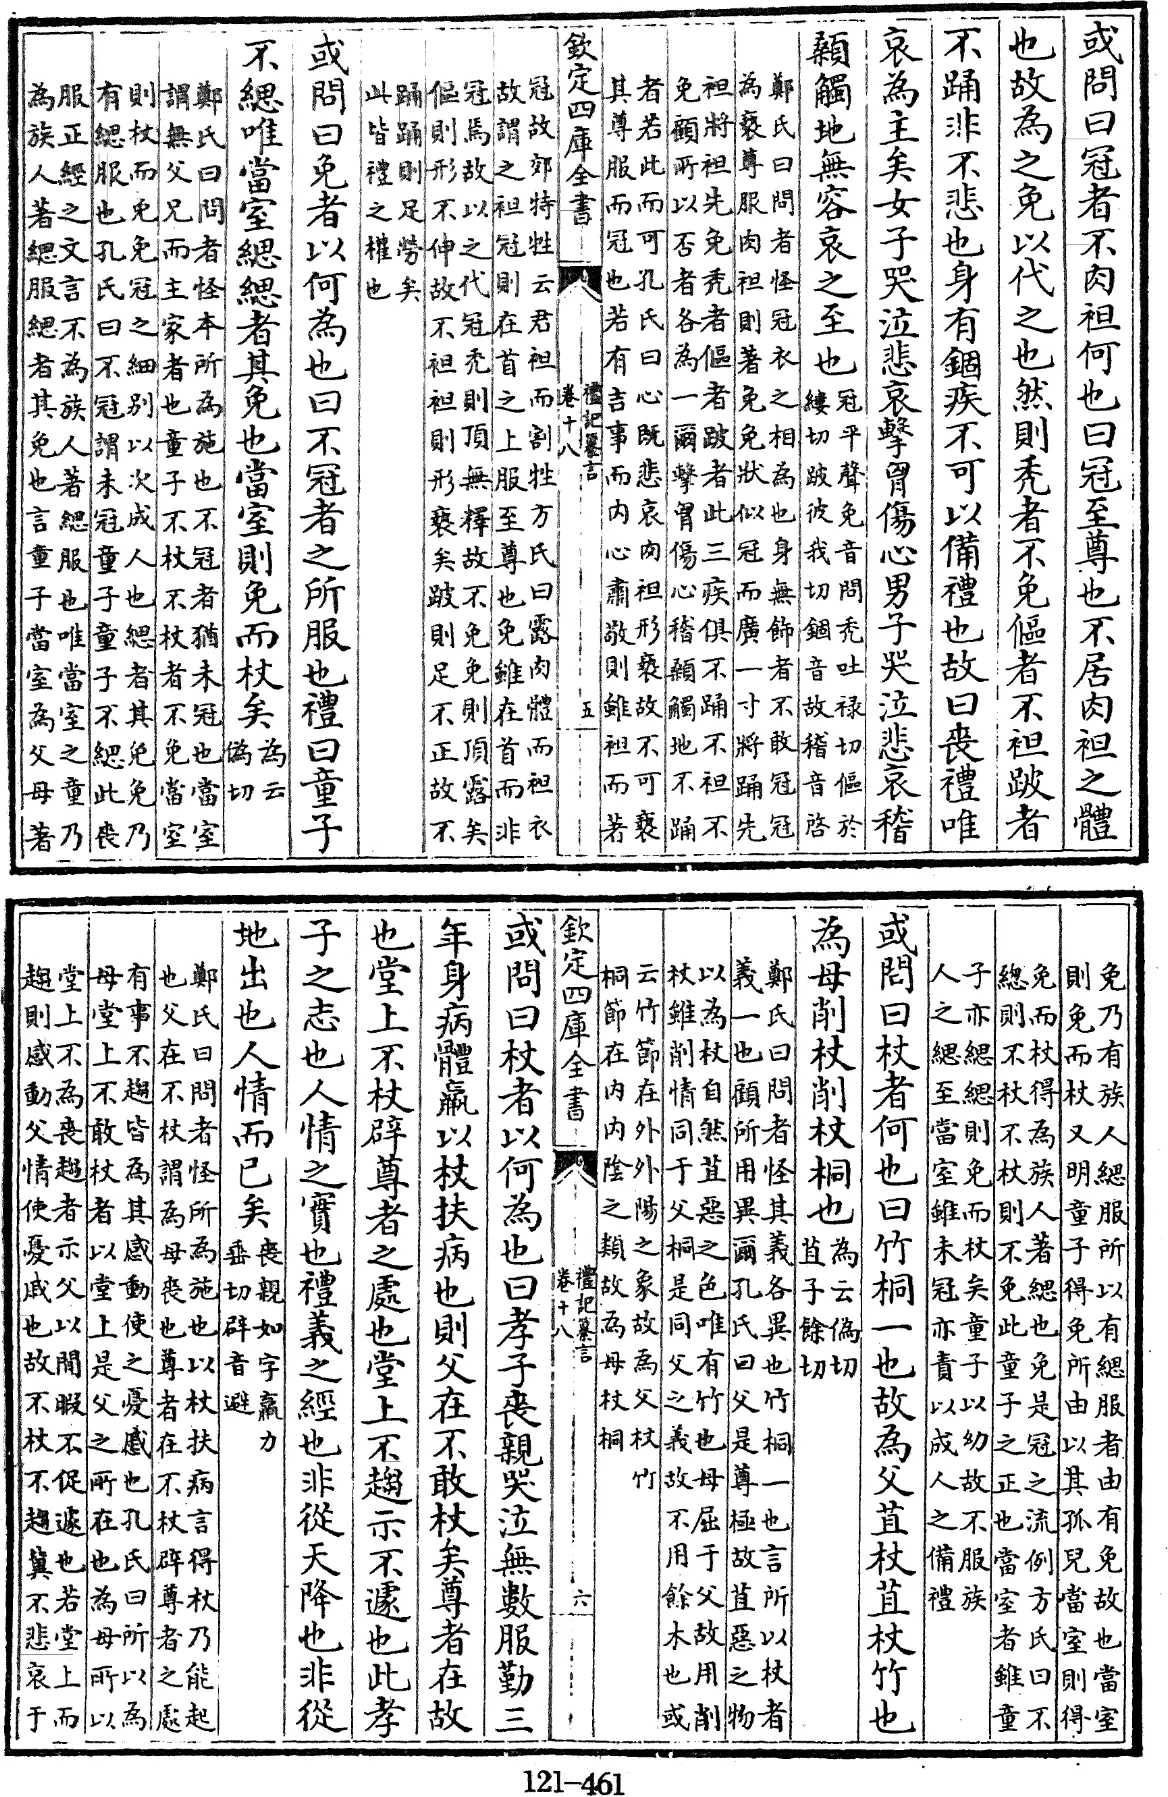 或問曰冠者不肉袒何也曰冠至尊也不居肉袒之體
也故為之免以代之也然則禿者不免傴者不袒跛者
不踊非不悲也身有錮疾不可以備禮也故曰喪禮唯
哀為主矣女子哭泣悲哀擊胷傷心男子哭泣悲哀稽
顙觸地無容哀之至也
冠平聲免音問禿吐禄切傴於
縷切跛彼我切錮音故稽音啓
鄭氏曰問者怪冠衣之相為也身無飾者不敢冠冠
為褻尊服肉袒則著免免狀似冠而廣一寸將踊先
袒將袒先免禿者傴者跛者此三疾俱不踊不袒不
免顧所以否者各為一爾擊胷傷心稽顙觸地不踊
者若此而可孔氏曰心既悲哀肉袒形褻故不可褻
其尊服而冠也若有吉事而内心肅敬則雖袒而著
欽定四庫全書
禮記纂言
卷十八
五
冠故郊特牲云君袒而割牲方氏曰露肉體而袒衣
故謂之袒冠則在首之上服至尊也免雖在首而非
冠焉故以之代冠禿則頂無釋故不免免則頂露矣
傴則形不伸故不袒袒則形褻矣跛則足不正故不
踊踊則足勞矣
此皆禮之權也
或問曰免者以何為也曰不冠者之所服也禮曰童子
不緦唯當室緦緦者其免也當室則免而杖矣
為云
偽切
鄭氏曰問者怪本所為施也不冠者猶未冠也當室
謂無父兄而主家者也童子不杖不杖者不免當室
則杖而免免冠之細别以次成人也緦者其免免乃
有緦服也孔氏曰不冠謂未冠童子童子不緦此喪
服正經之文言不為族人著緦服也唯當室之童乃
為族人著緦服緦者其免也言童子當室為父母著
免乃有族人緦服所以有緦服者由有免故也當室
則免而杖又明童子得免所由以其孤兒當室則得
免而杖得為族人著緦也免是冠之流例方氏曰不
緦則不杖不杖則不免此童子之正也當室者雖童
子亦緦緦則免而杖矣童子以幼故不服族
人之緦至當室雖未冠亦責以成人之備禮
或問曰杖者何也曰竹桐一也故為父苴杖苴杖竹也
為母削杖削杖桐也
為云偽切
苴子餘切
鄭氏曰問者怪其義各異也竹桐一也言所以杖者
義一也顧所用異爾孔氏曰父是尊極故苴惡之物
以為杖自然苴惡之色唯有竹也母屈于父故用削
杖雖削情同于父桐是同父之義故不用餘木也或
云竹節在外外陽之象故為父杖竹
桐節在内内陰之類故為母杖桐
欽定四庫全書
禮記纂言
卷十八
六
或問曰杖者以何為也曰孝子喪親哭泣無數服勤三
年身病體羸以杖扶病也則父在不敢杖矣尊者在故
也堂上不杖辟尊者之處也堂上不趨示不遽也此孝
子之志也人情之實也禮義之經也非從天降也非從
地出也人情而已矣
喪親如字羸力
垂切辟音避
鄭氏曰問者怪所為施也以杖扶病言得杖乃能起
也父在不杖謂為母喪也尊者在不杖辟尊者之處
有事不趨皆為其感動使之憂慼也孔氏曰所以為
母堂上不敢杖者以堂上是父之所在也為母所以
堂上不為喪趨者示父以閒暇不促遽也若堂上而
趨則感動父情使憂戚也故不杖不趨冀不悲哀于
121-461